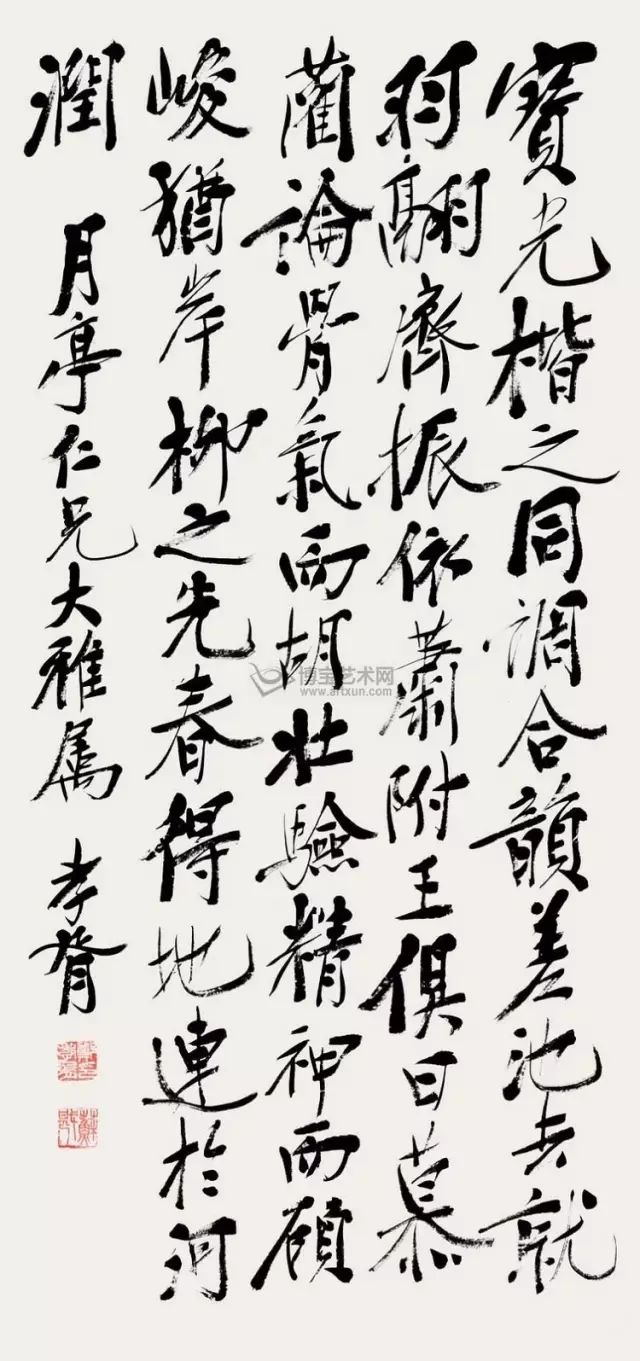 寶光楷之同調合韻差池去就
羽翮齊振依蕭附王俱曰慕
藺論骨氣而胡壯驗精神而碩
峻猶岸柳之先春得地連於河
潤
月亭仁兄大雅属 孝胥
博宝艺术网
www.artxun.com